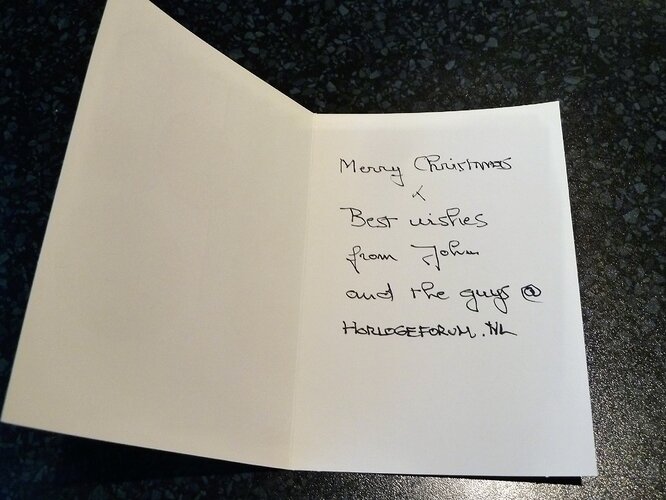 Merry Christmas
&
Best wishes
from John
and the guys @
HORLOGEFORUM.NL